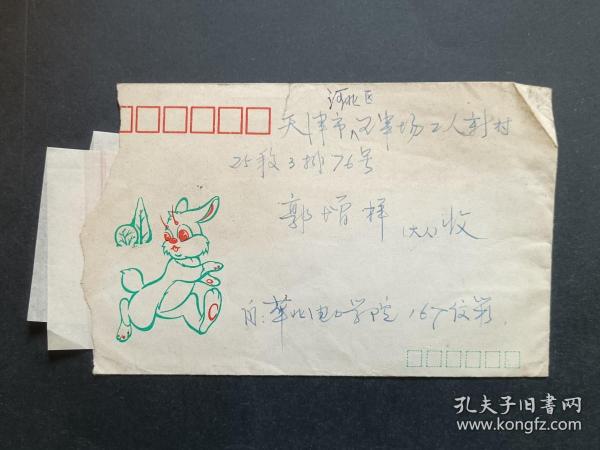 河北区
天津市 军场工人新村
25段3排76号
郭增祥 大人 收
自:華北电力学院167信箱
孔夫子旧书网
www.kongfz.com